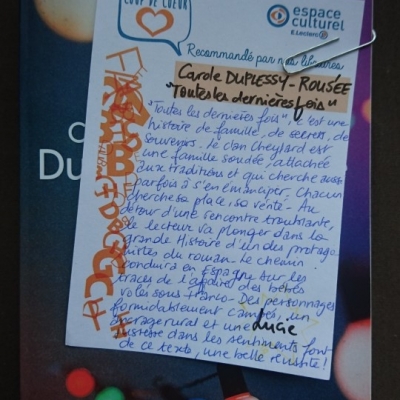 COUP DE CŒUR
espace
culturel
E.Leclerc
Recommandé par nos libraires
Carole DUPLESSY-ROUSÉE
"Toutes les dernières fois"
"Toutes les dernières fois", c'est une
histoire de famille, de secrets, de
souvenirs. Le clan Cheylard est
une famille soudée, attachée
aux traditions et qui cherche aussi
parfois à s'en émanciper. Chacun
cherche sa place, sa vérité. Au
détour d'une rencontre troublante,
le lecteur va plonger dans la
grande Histoire d'un des protago-
nistes du roman. Le chemin
conduira en Espagne sur les
traces de l'affaire des bébés
volés sous Franco. Des personnages
formidablement campés, un
ancrage rural et une
justesse dans les sentiments font
de ce texte, une belle réussite!
Du